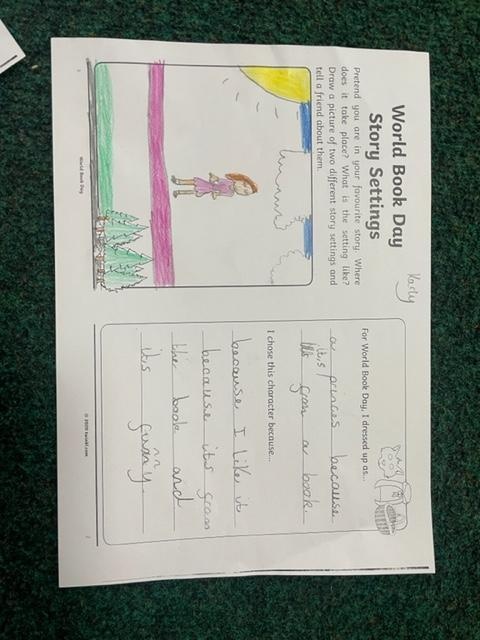 World Book Day
Story Settings
Karly
Pretend you are in your favourite story. Where
does it take place? What is the setting like?
Draw a picture of two different story settings and
tell a friend about them.
World Book Day
For World Book Day, I dressed up as...
a princes because
it's from a book
I chose this character because...
because I like it
because its from
the book and
its funny.
© 2020 twinkl.com